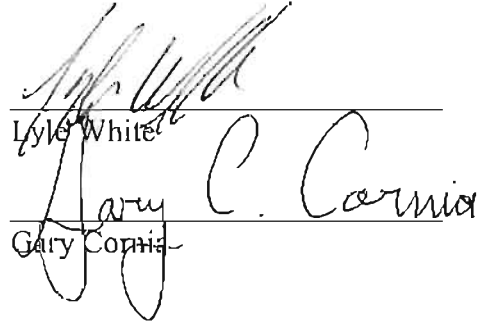 Lyle White
Gary C. Cornia
Gary Cornia